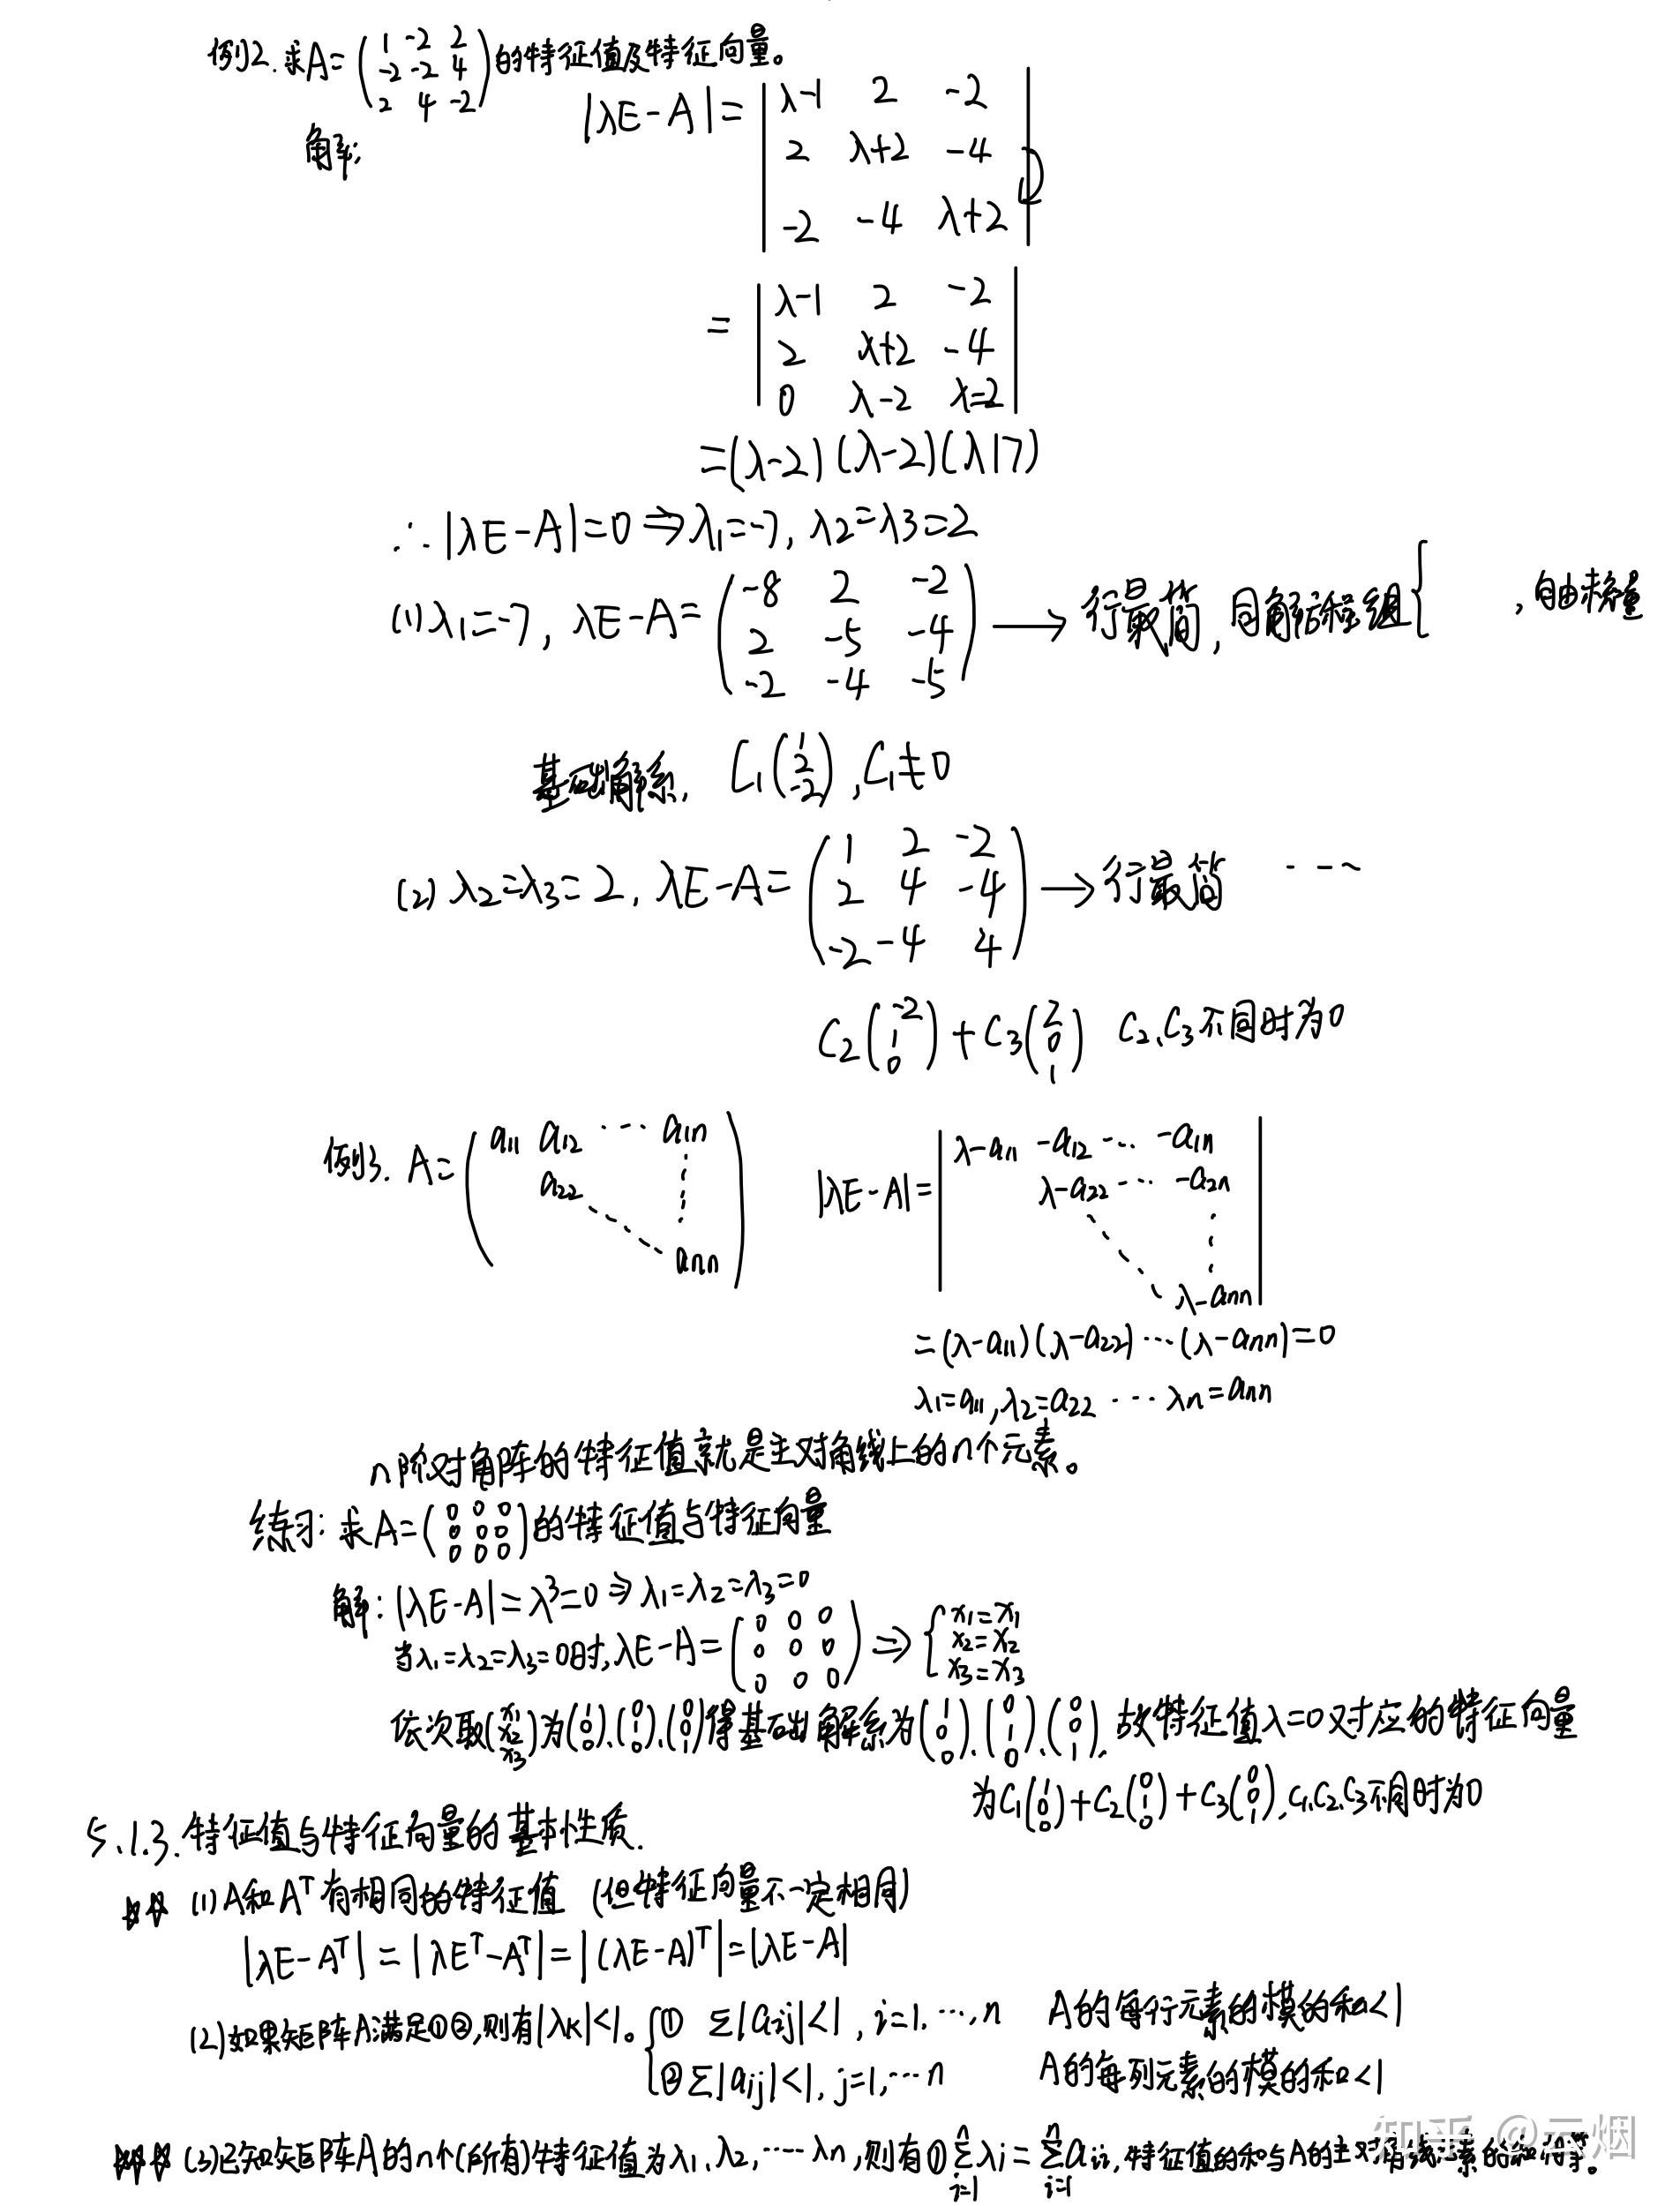 例2.求A=(1 -2 2
-2 -2 4
2 4 -2)的特征值及特征向量。
解:
|λE-A|=|λ-1 2 -2
2 λ+2 -4
-2 -4 λ+2|
=|λ-1 2 -2
2 λ+2 -4
0 λ-2 λ-2|
=(λ-2)(λ-2)(λ+7)
∴|λE-A|=0⇒λ1=-7, λ2=λ3=2
(1)λ1=-7, λE-A=(-8 2 -2
2 -5 -4
-2 -4 -5)→行最简,同解方程组{ ,自由未知量
基础解系, C1(1
2
-2), C1≠0
(2)λ2=λ3=2, λE-A=(1 2 -2
2 4 -4
-2 -4 4)→行最简 ····
C2(-2
1
0)+C3(2
0
1) C2、C3不同时为0
例3. A=(a11 a12 ··· a1n
a22
ann)
|λE-A|=|λ-a11 -a12 ··· -a1n
λ-a22 ··· -a2n
λ-ann|
=(λ-a11)(λ-a22)···(λ-ann)=0
λ1=a11,λ2=a22 ··· λn=ann
n阶对角阵的特征值就是主对角线上的n个元素。
练习:求A=(0 0 0
0 0 0
0 0 0)的特征值与特征向量
解:|λE-A|=λ³=0⇒λ1=λ2=λ3=0
当λ1=λ2=λ3=0时,λE-A=(0 0 0
0 0 0
0 0 0)⇒{x1=x1
x2=x2
x3=x3
依次取(x1
x2
x3)为(1
0
0)、(0
1
0)、(0
0
1)得基础解系为(1
0
0)、(0
1
0)、(0
0
1),故特征值λ=0对应的特征向量
为C1(1
0
0)+C2(0
1
0)+C3(0
0
1),C1、C2、C3不同时为0
5.1.3.特征值与特征向量的基本性质.
☆☆ (1)A和Aᵀ有相同的特征值 (但特征向量不一定相同)
|λE-Aᵀ|=|λEᵀ-Aᵀ|=|(λE-A)ᵀ|=|λE-A|
(2)如果矩阵A满足①②,则有|λk|<1。{① Σ|aij|<1, i=1,···,n A的每行元素的模的和<1
②Σ|aij|<1, j=1,···n A的每列元素的模的和<1
☆☆☆ (3)已知矩阵A的n个(所有)特征值为λ1、λ2,····λn,则有①Σλi=Σaii,特征值的和与A的主对角线元素的和相等。
n n
i=1 i=1
知乎 @云烟